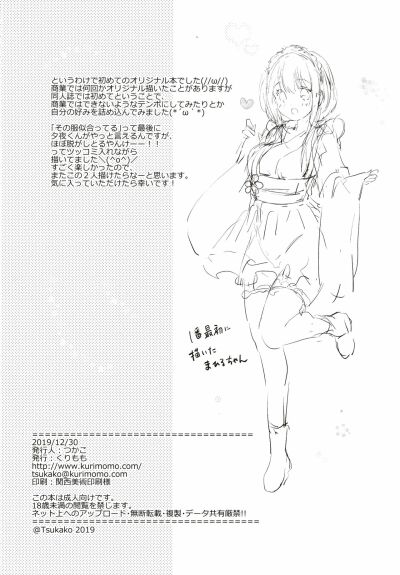 というわけで初めてのオリジナル本でした(//ω//)
商業では何回かオリジナル描いたことがありますが
同人誌では初めてということで、
商業ではできないようなテンポにしてみたりとか
自分の好みを詰め込んでみました(*´ω｀*)
「その服似合ってる」って最後に
夕夜くんがやっと言えるんですが、
ほぼ脱がしとるやんけーー！！
ってツッコミ入れながら
描いてました＼(^o^)／
すごく楽しかったので、
またこの２人描けたらなーと思います。
気に入っていただけたら幸いです！
1番最初に
描いた
まひるちゃん
2019/12/30
発行人：つかこ
発行：くりもも
http://www.kurimomo.com/
tsukako@kurimomo.com
印刷：関西美術印刷様
この本は成人向けです。
18歳未満の閲覧を禁します。
ネット上へのアップロード・無断転載・複製・データ共有厳禁!!
@Tsukako 2019